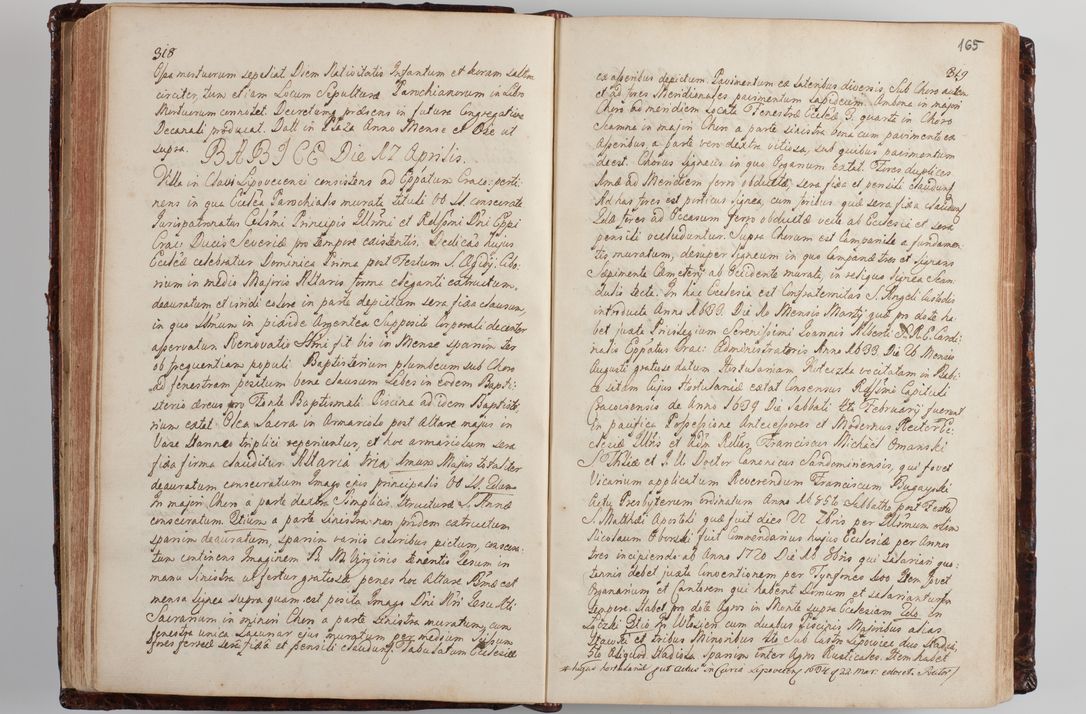 318
Ossa mortuorum sepeliat Diem Nativitatis Infantum et horam saltem
circiter, tum etiam Locum Sepulturæ Parochianorum in Libro
Mortuorum connotet. Decretum præsens in futura Congregatione
Decanali producat. Datt in Płaza Anno Mense et Die ut
supra. BABICE Die 17 Aprilis.
Villa in Clavi Lipovecensi consistens ad Eppatum Crac: perti-
nens in qua Ecclea Parochialis murata tituli OO SS. consecrata
Jurispatronatus Celsmi Principis Illmi et Rdssmi Dni Eppi
Crac: Ducis Severiæ pro tempore existentis. Dedicao hujus
Eccleæ celebratur Dominica Prima post Festum S. Ægidij. Cibo-
rium in medio Majoris Altaris forma eleganti extructum,
deauratum et viridi colore in parte depictum sera fida clausum,
in quo SSmum in pixide Argentea Supposito Corporali decenter
asservatur. Renovatio SSmi fit bis in Mense sparsim ter
ob frequentiam populi. Baptisterium plumbeum sub Choro
ad fenestram positum bene clausum Lebes in eodem Bapti-
sterio æreus pro Fonte Baptismali Piscina ad idem Baptiste-
rium extat Olea Sacra in Armariolo post Altare majus in
Vase Stanneo triplici reperiuntur, et hoc armariolum sera
fida firma clauditur Altaria tria 1mum Majus totaliter
deauratum consecratum Imago ejus principalis OO SS. 2dum
In majori Choro a parte dextra Simplicis Structuræ S. Annæ
consecratum 3tium a parte Sinistra non pridem extructum
sparsim deauratum, sparsim variis coloribus pictum, consecra-
tum continens Imaginem B M Virginis tenentis Jesum in
manu Sinistra ut fertur gratiosa penes hoc Altare BMæ est
mensa lignea supra quam est posita Imago Dni Nri Jesu Xti
Sacrarium in minori Choro a parte Sinistra muratum, cum
fenestra unica Lacunar ejus muratum per medium
fores ferreæ sera fida et pensili claudunt Tabulatum Ecclesiæ
165
319
ex asseribus depictum. Pavimentum ex lateribus diversis, Sub Choro autem
et ad fores Meridianales pavimentum lapideum. Ambona in majori
Choro ad meridiem locata Fenestræ Eccleæ 3. quarta in Choro
Scamna in majori Choro a parte sinistra bona cum pavimento ex
Asseribus, a parte vero dextra vitiosa, sub quibus pavimentum
deest. Chorus ligneus in quo Organum extat. Fores duplices
1mæ ad Meridiem ferro obductæ, sera fida et pensili claudunt
Ad has fores est porticus lignea, cum foribus quæ sera fida claudunt
2dæ fores ad Occasum ferro obductæ vecte ab Ecclesia et sera
pensili occluduntur. Supra Chorum est Campanile a fundamen-
tis muratum, desuper ligneum in quo Campanæ tres et signans
Sæpimenta Cæmeterij ab Occidente murata, in reliquo lignea Scan-
dulis tecta. In hac Ecclesia est Confraternitas S. Angeli Custodis
introducta Anno 1633. Die 10 Mensis Martij, quæ pro dote ha-
bet juxta Privilegium Serenissimi Joannis Alberti S. R. E. Cardi-
nalis Eppatus Crac: Administratoris Anno 1633 Die 26 Mensis
Augusti gratiose datum Hortulaniam, vocitatam in Babi-
ce sitam Cujus Hortulaniæ extat Consensus Rdssmi Capituli
Cracoviensis de Anno 1639 Die Sabbati 4ta Februarij fuerunt
In pacifica Possessione Antecessores et Modernus Rector Ec-
clesiæ Illris et Adm Rdus Franciscus Michael Omanski
S. Thliæ et J. U. Doctor Canonicus Sandomiriensis, qui fovet
Vicarium applicatum Reverendum Franciscum Bugayski
Actu Presbyterum ordinatum Anno Sabbatho post Festum
S. Matthæi Apostoli quæ fuit dies 22 7bris per Illrmum olim
Nicolaum Oborski fuit Commendarius hujus Ecclesiæ per Annos
tres incipiendo ab Anno 1720 Die 1 8bris qui Salarian quo-
tannis debet juxta Conventionem per Tynfones 200 Item fovet
Organarium et Cantorem qui habent Domum et salariantur
Seppore. Habet pro dote Agros in Monte supra Ecclesiam 2do In
Łączki 3tio In Ulasien cum duabus Piscinis Majoribus alias
Stawki et tribus Minoribus 4to Sub Castro Lipoviec duo Stadia,
5to Aliquod Stadiola Sparsim inter Agros Rusticales. Item habet
* hujus hortulaniæ put actus in Curia Lipovecen 1634 q 22 Mar: edocet. Sutor)